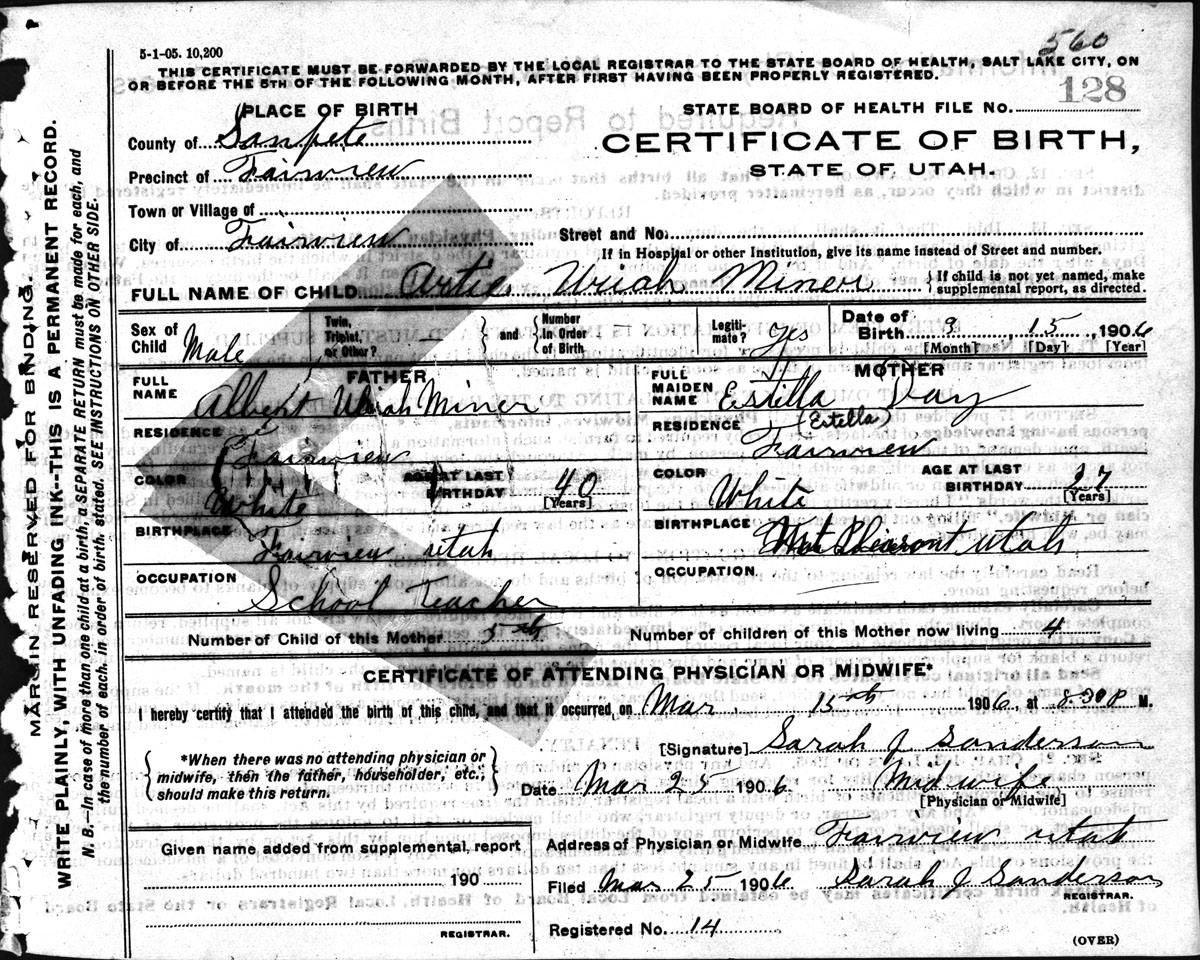 5-1-05. 10,200
560
THIS CERTIFICATE MUST BE FORWARDED BY THE LOCAL REGISTRAR TO THE STATE BOARD OF HEALTH, SALT LAKE CITY, ON
OR BEFORE THE 5TH OF THE FOLLOWING MONTH, AFTER FIRST HAVING BEEN PROPERLY REGISTERED.
PLACE OF BIRTH
STATE BOARD OF HEALTH FILE NO. 128
County of Sanpete
CERTIFICATE OF BIRTH,
Precinct of Fairview
STATE OF UTAH.
Town or Village of
City of Fairview
Street and No.
If in Hospital or other Institution, give its name instead of Street and number.
FULL NAME OF CHILD Artie Uriah Miner
{If child is not yet named, make
supplemental report, as directed.
Sex of Child Male
Twin, Triplet, or Other? — } and { Number In Order of Birth
Legiti-mate? Yes
Date of Birth 3 15, 1906
[Month] [Day] [Year]
FATHER
FULL NAME Albert Uriah Miner
RESIDENCE Fairview
COLOR White
AGE AT LAST BIRTHDAY 40
[Years]
BIRTHPLACE Fairview Utah
OCCUPATION School Teacher
MOTHER
FULL MAIDEN NAME Estilla Day
(Estella)
RESIDENCE Fairview
COLOR White
AGE AT LAST BIRTHDAY 27
[Years]
BIRTHPLACE Mt Pleasant Utah
OCCUPATION
Number of Child of this Mother 5th
Number of children of this Mother now living 4
CERTIFICATE OF ATTENDING PHYSICIAN OR MIDWIFE*
I hereby certify that I attended the birth of this child, and that it occurred on Mar 15th 1906, at 8.30P M.
{*When there was no attending physician or
midwife, then the father, householder, etc.,
should make this return.}
[Signature] Sarah J Sanderson
Date Mar 25 1906 Midwife
[Physician or Midwife]
Given name added from supplemental report
190
REGISTRAR.
Address of Physician or Midwife Fairview Utah
Filed Mar 25 1906 Sarah J Sanderson
REGISTRAR.
Registered No. 14
(OVER)
MARGIN RESERVED FOR BINDING.
WRITE PLAINLY, WITH UNFADING INK--THIS IS A PERMANENT RECORD.
N. B.—In case of more than one child at a birth, a SEPARATE RETURN must be made for each, and
the number of each, in order of birth, stated. SEE INSTRUCTIONS ON OTHER SIDE.